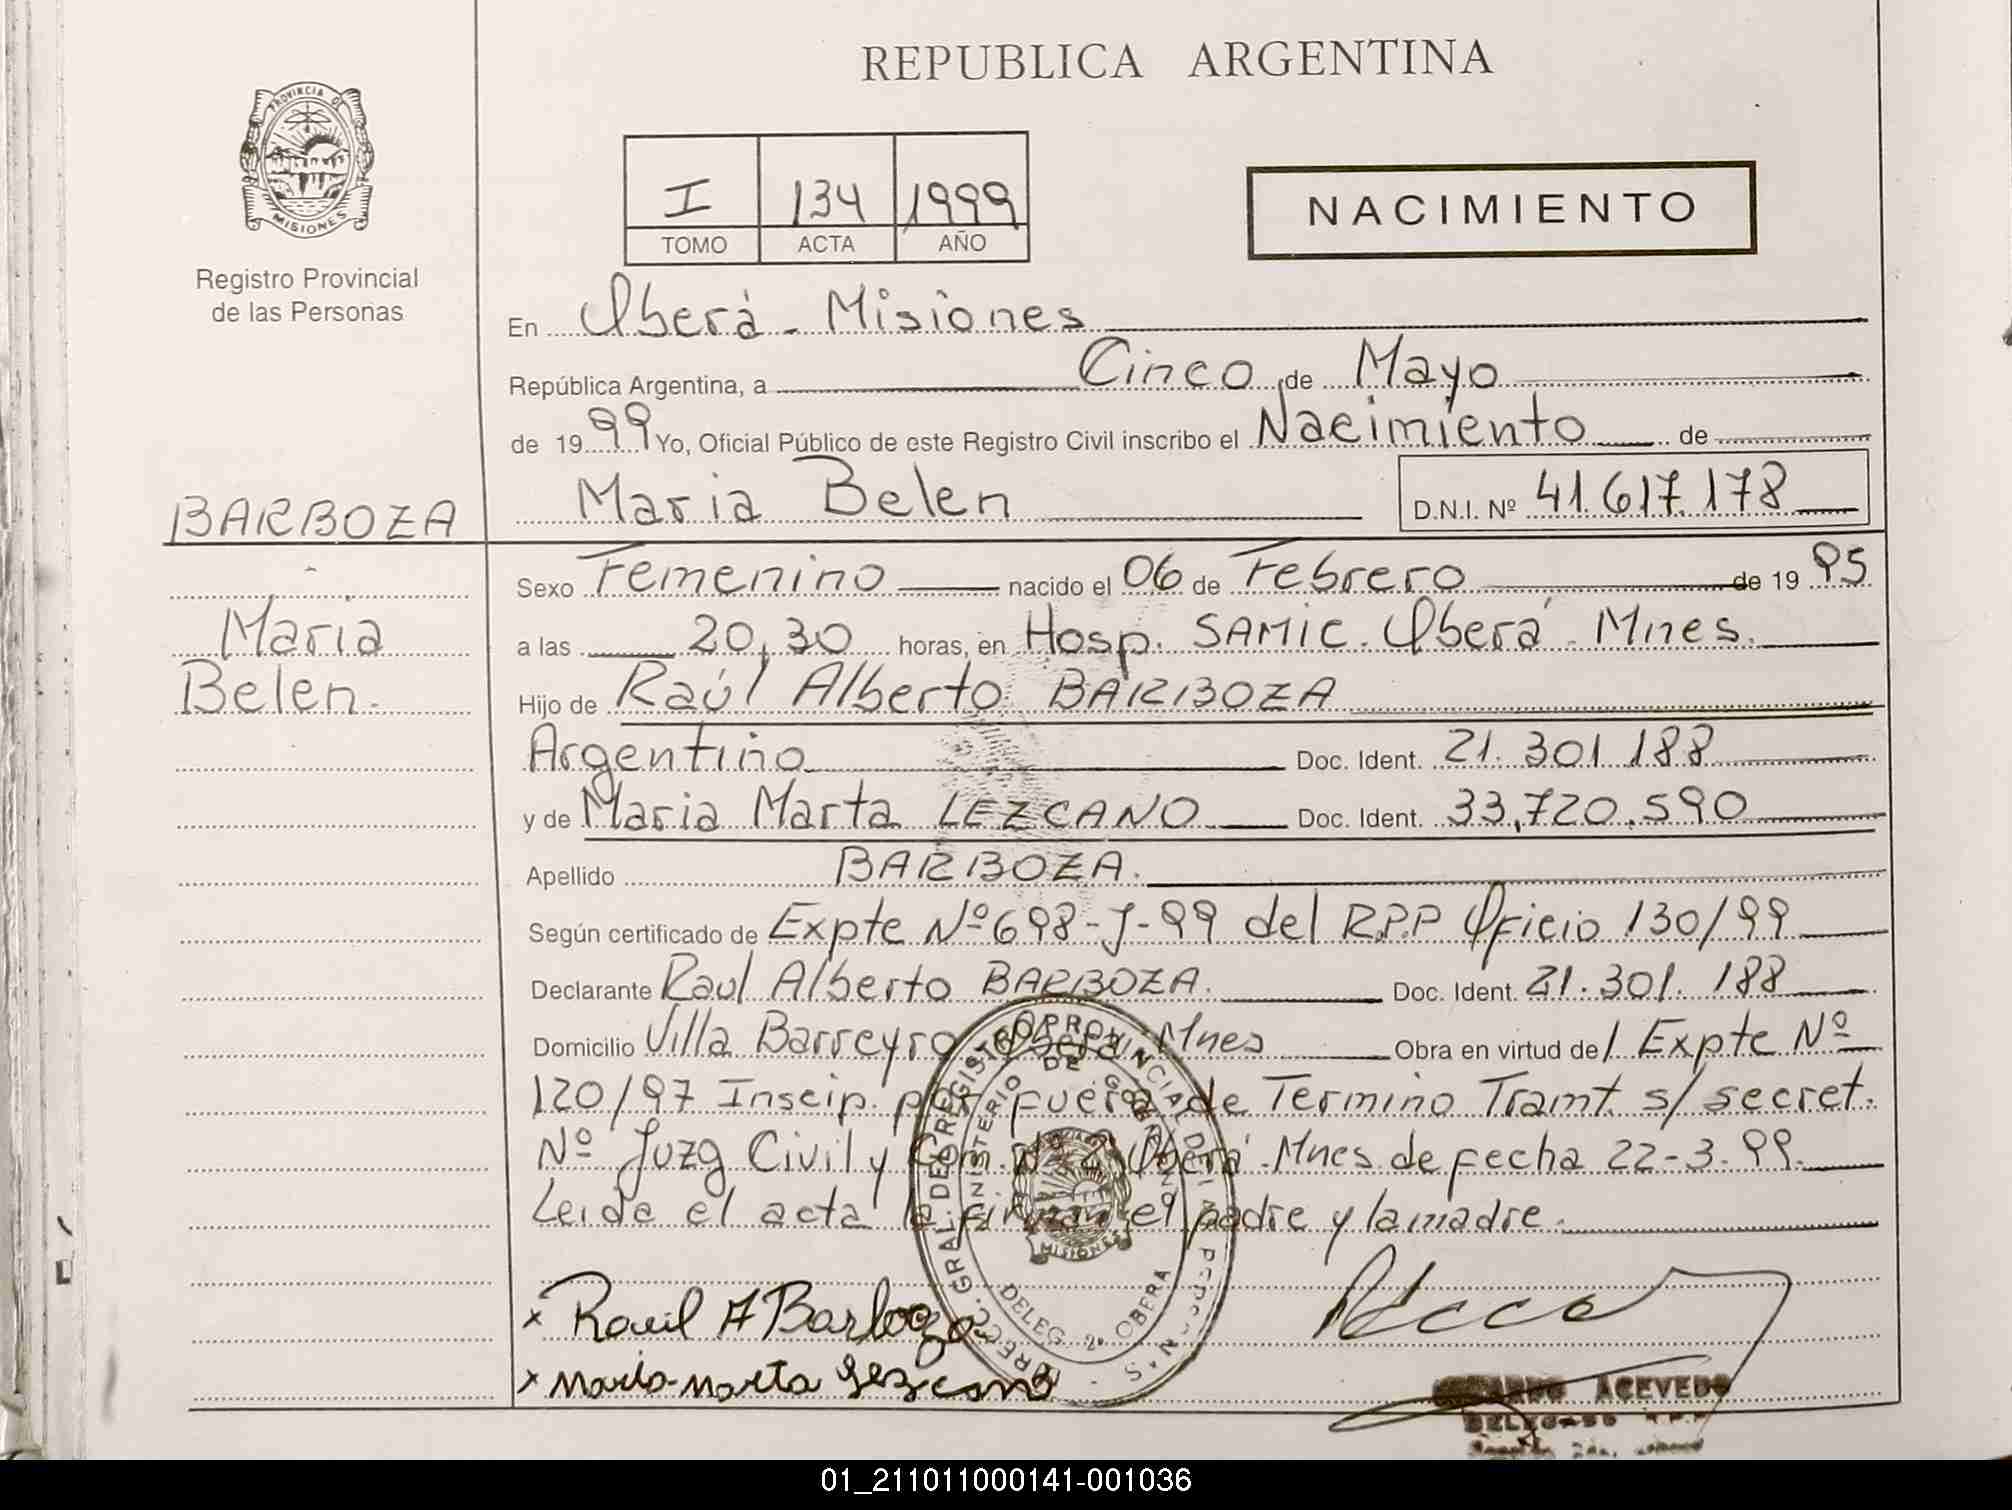 REPUBLICA ARGENTINA
PROVINCIA DE
MISIONES
Registro Provincial
de las Personas
I 134 1999
TOMO ACTA AÑO
NACIMIENTO
En Oberá - Misiones
República Argentina, a Cinco de Mayo
de 1999 Yo, Oficial Público de este Registro Civil inscribo el Nacimiento de
BARBOZA
Maria Belen D.N.I. Nº 41.617.178
Maria
Belen.
Sexo Femenino nacido el 06 de Febrero de 1995
a las 20,30 horas, en Hosp. SAMIC. Oberá - Mnes.
Hijo de Raúl Alberto BARBOZA
Argentino Doc. Ident. 21.301.188
y de Maria Marta LEZCANO Doc. Ident. 33,720,590
Apellido BARBOZA.
Según certificado de Expte Nº 698-J-99 del R.P.P Oficio 130/99
Declarante Raul Alberto BARBOZA. Doc. Ident. 21.301.188
Domicilio Villa Barreyro Oberá, Mnes Obra en virtud del Expte Nº
120/97 Inscip. por fuera de Termino Tramt. s/ secret.
Nº Juzg Civil y Com. Nº 2 Oberá - Mnes. de fecha 22-3-99.
Leida el acta la firman el padre y la madre.
x Raul A Barboza
x Maria Marta Lezcano
DIRECC. GRAL. DE REGISTRO PROVINCIAL DE LAS PERSONAS
MINISTERIO DE GOBIERNO
MISIONES
DELEG. 2ª OBERA
ACEVEDO
DELEGADO
01_211011000141-001036